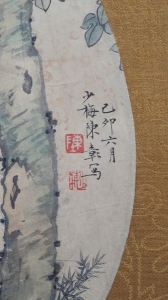 己卯六月
少梅陳彰寫
陳